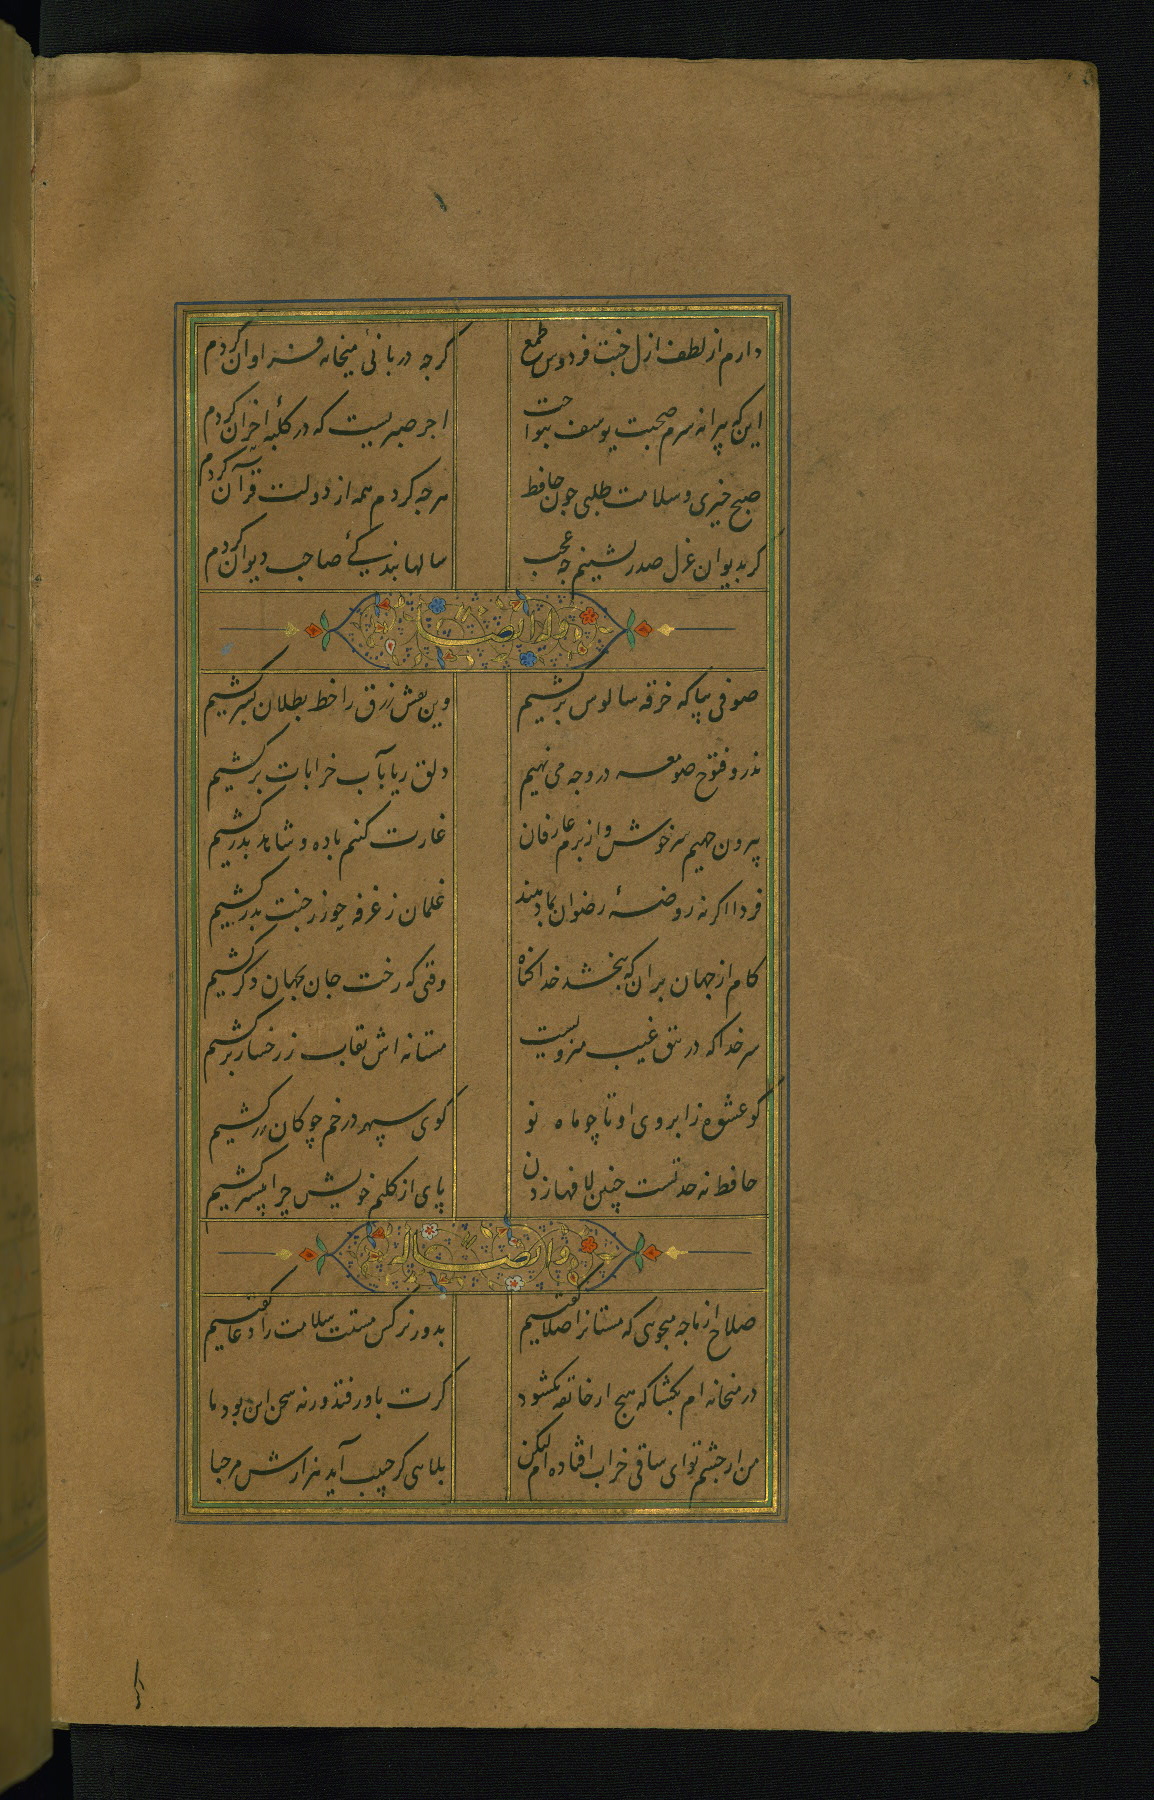 دارم از لطف ازل جنت فردوس طمع
کرچه دربانئ میخانه فراوان کردم
این که پیرانه سرم صحبت یوسف بنواخت
اجر صبریست که در کلبهٔ احزان کردم
صبح خیزی و سلامت طلبی چون حافظ
هرچه کردم همه از دولت قرآن کردم
کر بدیوان غزل صدر نشینم چه عجب
سالها بندکیٔ صاحب دیوان کردم
وله ایضا
صوفی بیا که خرقه سالوس برکشیم
وین نقش زرق را خط بطلان بسر کشیم
نذر و فتوح صومعه در وجه می نهیم
دلق ریا بآب خرابات برکشیم
بیرون جهیم سرخوش و از بزم عارفان
غارت کنیم باده و شاهد بدر کشیم
فردا اکر نه روضهٔ رضوان بما دهند
غلمان ز غرفه حور ز جنت بدر کشیم
کام از جهان بران که ببخشد خدا کناه
وقتی که رخت جان بجهان دکر کشیم
سر خدا که در تتق غیب منزویست
مستانه اش نقاب ز رخسار برکشیم
کو عشوه ز ابروی او تا چو ماه نو
کوی سپهر در خم چوکان زر کشیم
حافظ نه حد تست چنین لافها زدن
پای از کلیم خویش چرا پیشتر کشیم
وله ایضا
صلاح از ما چه میجویی که مستانرا صلا کفتیم
بدور نرکس مستت سلامت را دعا کفتیم
در میخانه ام بکشا که هیچ از خانقه نکشود
کرت باور فتد ورنه سخن این بود ما
من از چشم تو ای ساقی خراب افتاده ام لیکن
بلایی کز حبیب آید هزارش مرحبا